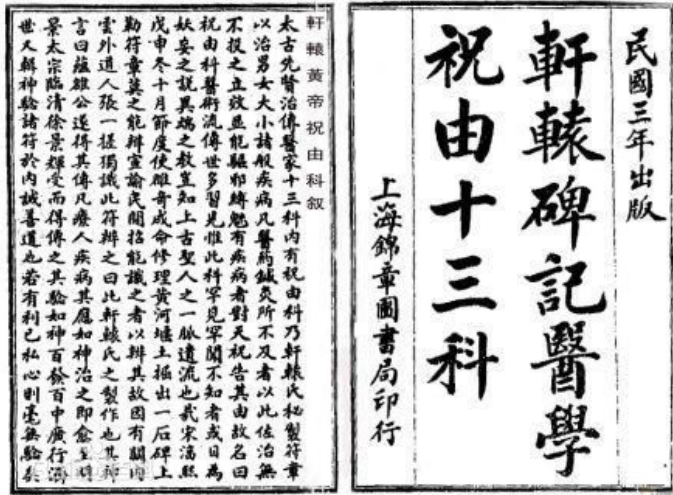 民國三年出版
軒轅碑記醫學
祝由十三科
上海錦章圖書局印行
軒轅黃帝祝由科叙
太古先賢治傳醫家十三科內有祝由科乃軒轅氏秘製符章
以治男女大小諸般疾病凡醫葯鍼灸所不及者以此佐治無
不投之立效並能驅邪縛魅有疾病者對天祝告其由故名曰
祝由科醫術流傳世多習見惟此科罕見罕聞不知者或目為
妖妄之説異端之教豈知上古聖人之一脈遺流也哉宋淳熙
戊申冬十月節度使雒奇成命修理黃河堰土掘出一石碑上
勒符章莫之能辨宣諭民間招能識之者以辨其故因有關內
雲外道人張一槎獨識此符辨之曰此軒轅氏之製作也其神
言曰蘊雒公遂得其傳凡療人疾病其應如神治之即愈至明
景太宗臨清徐景輝受而得傳之其驗如神百發百中廣行濟
世又輯神驗諸符於內誠善道也若有利己私心則毫無驗矣